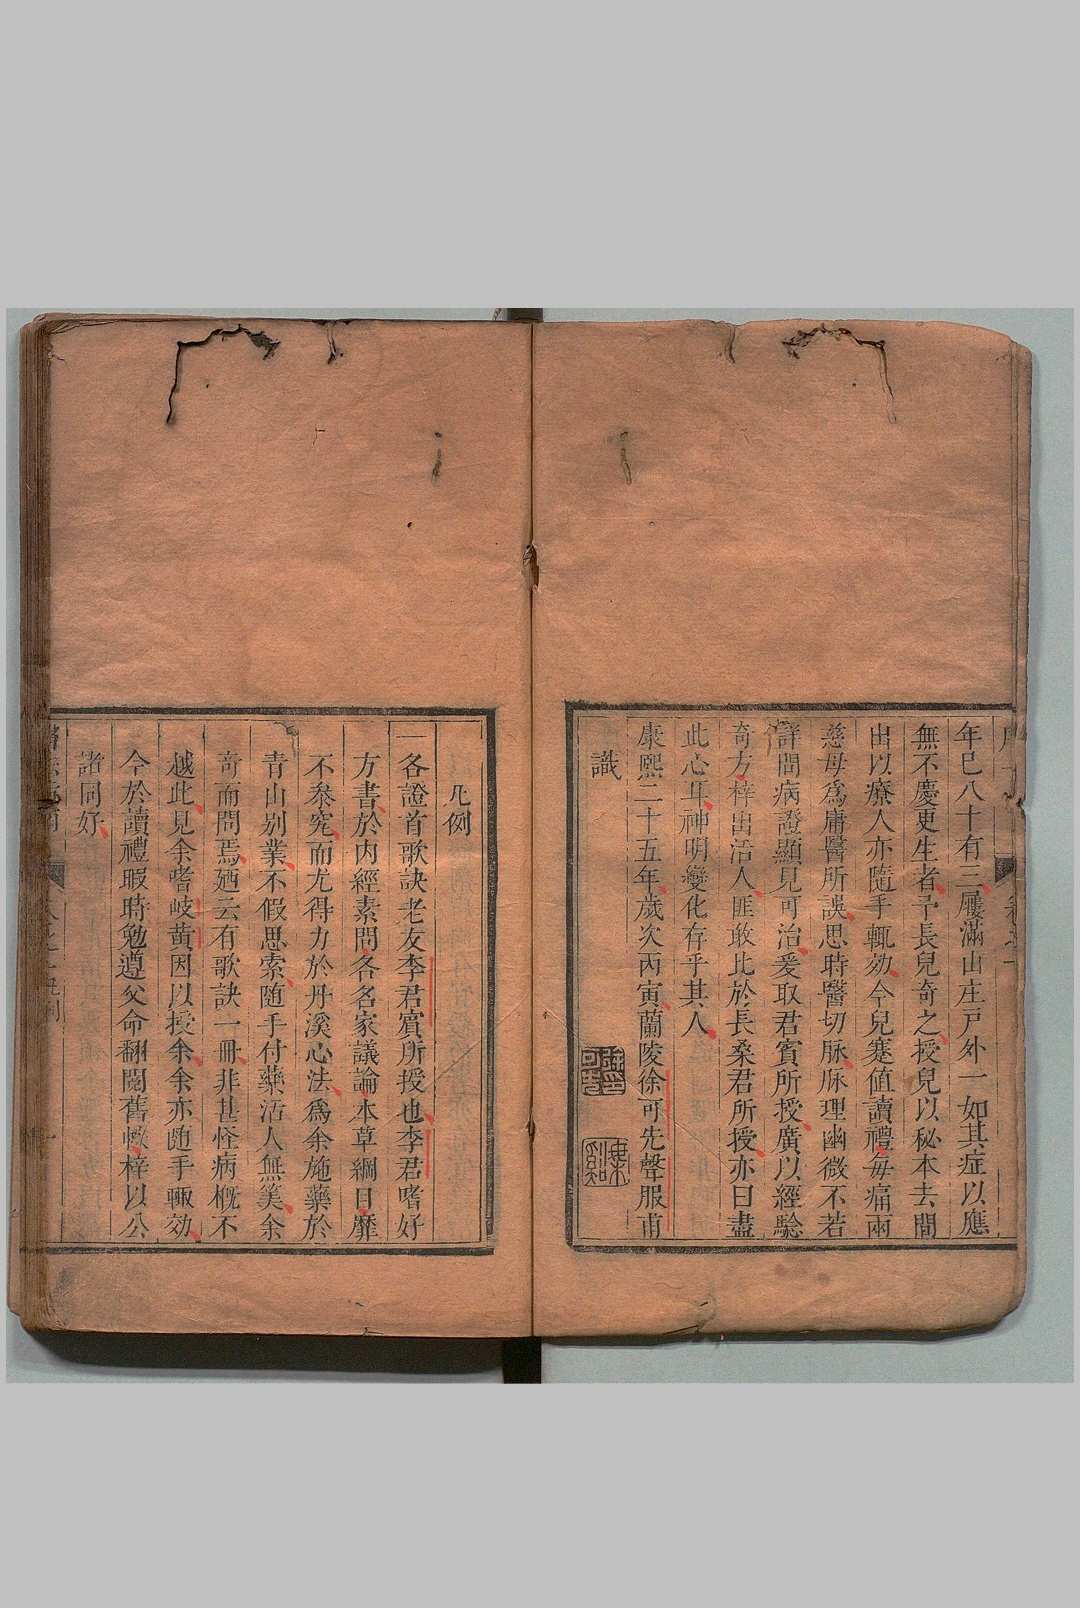 年已八十有三屨滿山庄戶外一如其症以應
無不慶更生者予長兒奇之授兒以秘本去間
出以療人亦隨手輒効今兒蹇值讀禮每痛兩
慈母為庸醫所誤思時醫切脉脉理幽微不若
詳問病證顯見可治爰取君賓所授廣以經驗
奇方梓出活人匪敢比於長桑君所授亦曰盡
此心耳神明變化存乎其人
康熙二十五年歲次丙寅蘭陵徐可先聲服甫
識
凡例
一各證首歌訣老友李君賓所授也李君嗜好
方書於內經素問各各名家議論本草綱目靡
不叅究而尤得力於丹溪心法為余施藥於
青山别業不假思索随手付藥活人無筭余
竒而問焉廼云有歌訣一冊非甚怪病槪不
越此見余嗜岐黄因以授余余亦随手輒効
今於讀禮暇時勉遵父命翻閱舊帙梓以公
諸同好